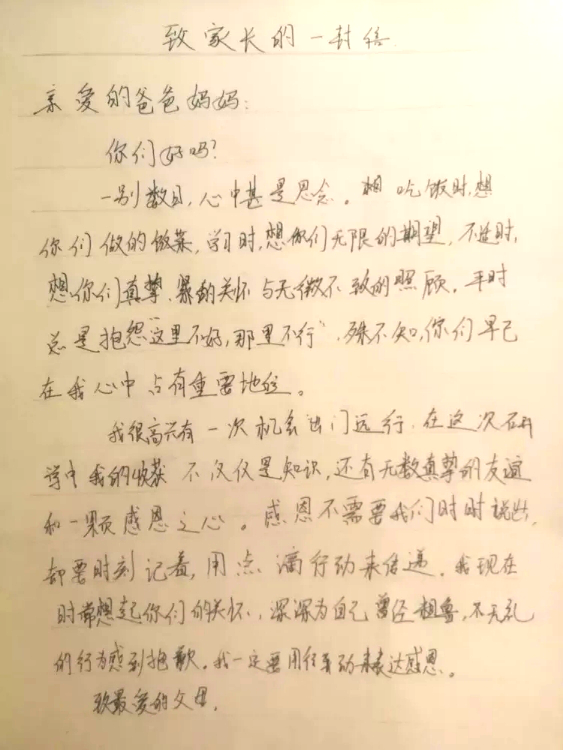 致家长的一封信
亲爱的爸爸妈妈：
你们好吗？
一别数日，心中甚是思念。 吃饭时，想
你们做的饭菜，学习时，想你们无限的期望，不适时，
想你们真挚 的关怀与无微不致的照顾，平时
总是抱怨“这里不好，那里不行”，殊不知，你们早已
在我心中占有重要地位。
我很高兴有一次机会出门远行，在这次研
学中我的收获不仅仅是知识，还有无数真挚的友谊
和一颗感恩之心。感恩不需要我们时时说出，
却要时刻记着，用点滴行动来传递。我现在
时常想起你们的关怀，深深为自己曾经粗鲁，不 礼
的行为感到抱歉，我一定要用 动来表达感恩。
致最爱的父母。